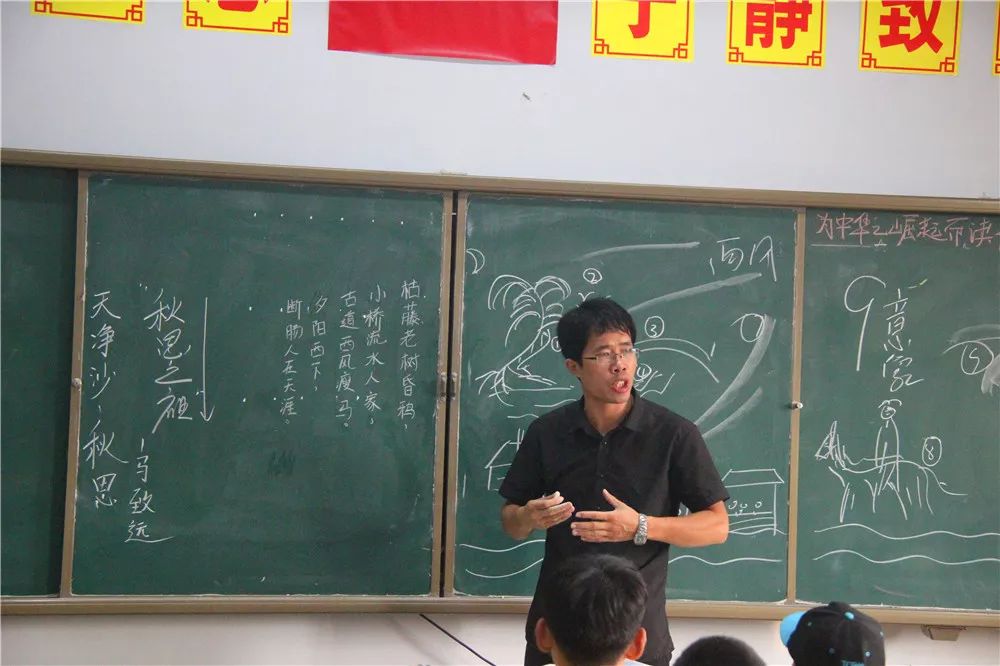 静 致
天净沙·秋思
"秋思之祖
~马致远
枯藤老树昏鸦，
小桥流水人家，
古道西风瘦马。
夕阳西下，
断肠人在天涯。
西风
②
③
为中华之崛起而读
9意象
⑤
⑧